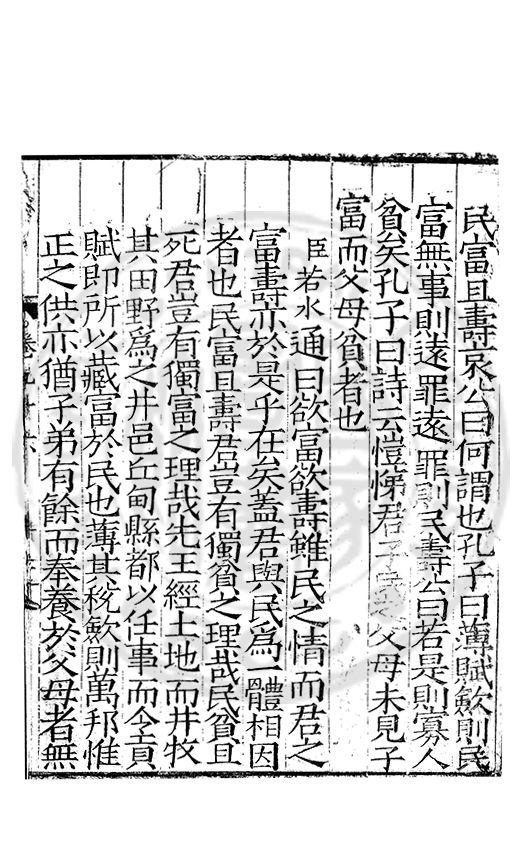 民富且壽哀公曰何謂也孔子曰薄賦斂則民
富無事則遠罪遠罪則民壽公曰若是則寡人
貧矣孔子曰詩云愷悌君子民之父母未見子
富而父母貧者也
臣若水通曰欲富欲壽雖民之情而君之
富壽亦於是乎在矣蓋君與民爲一體相因
者也民富且壽君豈有獨貧之理哉民貧且
死君豈有獨富之理哉先王經土地而井牧
其田野爲之井邑丘甸縣都以任事而令貢
賦即所以藏富於民也薄其稅斂則萬邦惟
正之供亦猶子弟有餘而奉養於父母者無